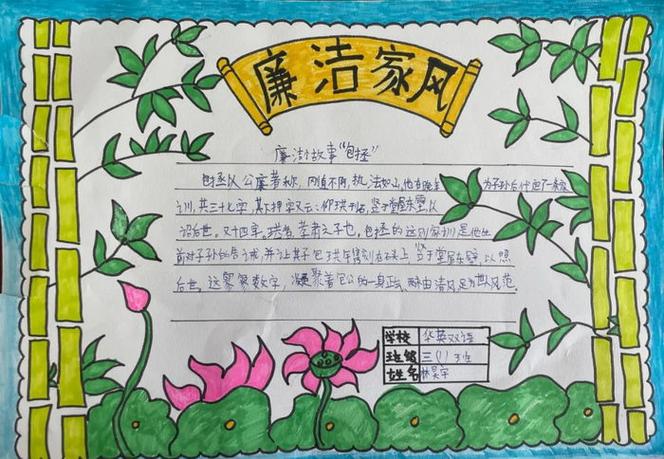 廉洁家风
廉洁故事“包拯”
包拯以公廉著称，阿不阿，执法如山，他在晚年为子孙后代定了一条家
训，共三十七字，其下押字又云：仰珙刊石，竖于堂屋东壁，以
诏后世。又十四字。珙者，孝肃之子也。包拯的这则家训是他生
前对子孙的告诫，并让其子包珙刻在石上，竖于堂屋东壁，以照
后世。这寥寥数字，凝聚着包公的一身正气，两袖清风，足为世风范。
学校 华英双语
班级 三（1）班
姓名 林昊宇